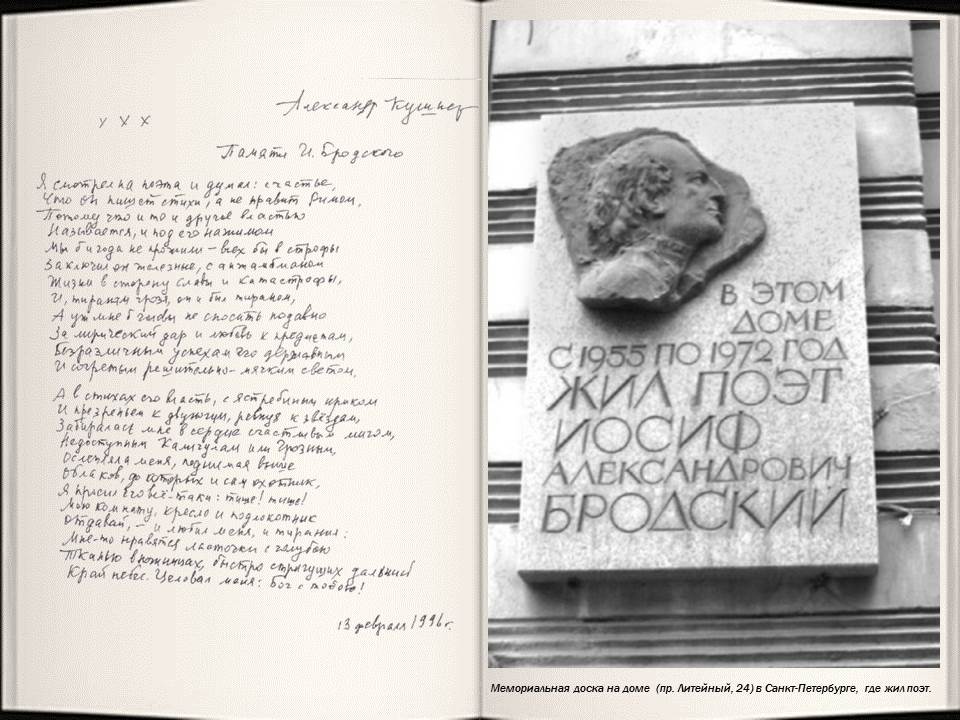 Александр Кушнер
х х х
Памяти И. Бродского
Я смотрел на поэта и думал: счастье,
Что он пишет стихи, а не правит Римом,
Потому что и то и другое властью
Называется, и под его нажимом
Мы б и года не прожили – всех бы в строфы
Заключил он железные, с анжамбманом
Жизни в сторону славы и катастрофы,
И, тиранам грозя, он и был тираном,
А уж мне б головы не сносить подавно
За лирический дар и любовь к предметам,
Безразличным успехам его державным
И согретым решительно-мягким светом.
А в стихах его власть, с ястребиным криком
И презреньем к двуногим, ревнуя к звёздам,
Забиралась мне в сердце счастливым мигом,
Недоступным Калигулам или Грозным,
Ослепляла меня, поднимая выше
Облаков, до которых и сам охотник,
Я просил его всё-таки: тише! тише!
Мою комнату, кресло и подлокотник
Отдавай, – и любил меня, и тиранил:
Мне-то нравятся ласточки с голубою
Тканью в ножницах, быстро стригущих дальний
Край небес. Целовал меня: Бог с тобою!
13 февраля 1996 г.
В ЭТОМ
ДОМЕ
С 1955 ПО 1972 ГОД
ЖИЛ ПОЭТ
ИОСИФ
АЛЕКСАНДРОВИЧ
БРОДСКИЙ
Мемориальная доска на доме (пр. Литейный, 24) в Санкт-Петербурге, где жил поэт.